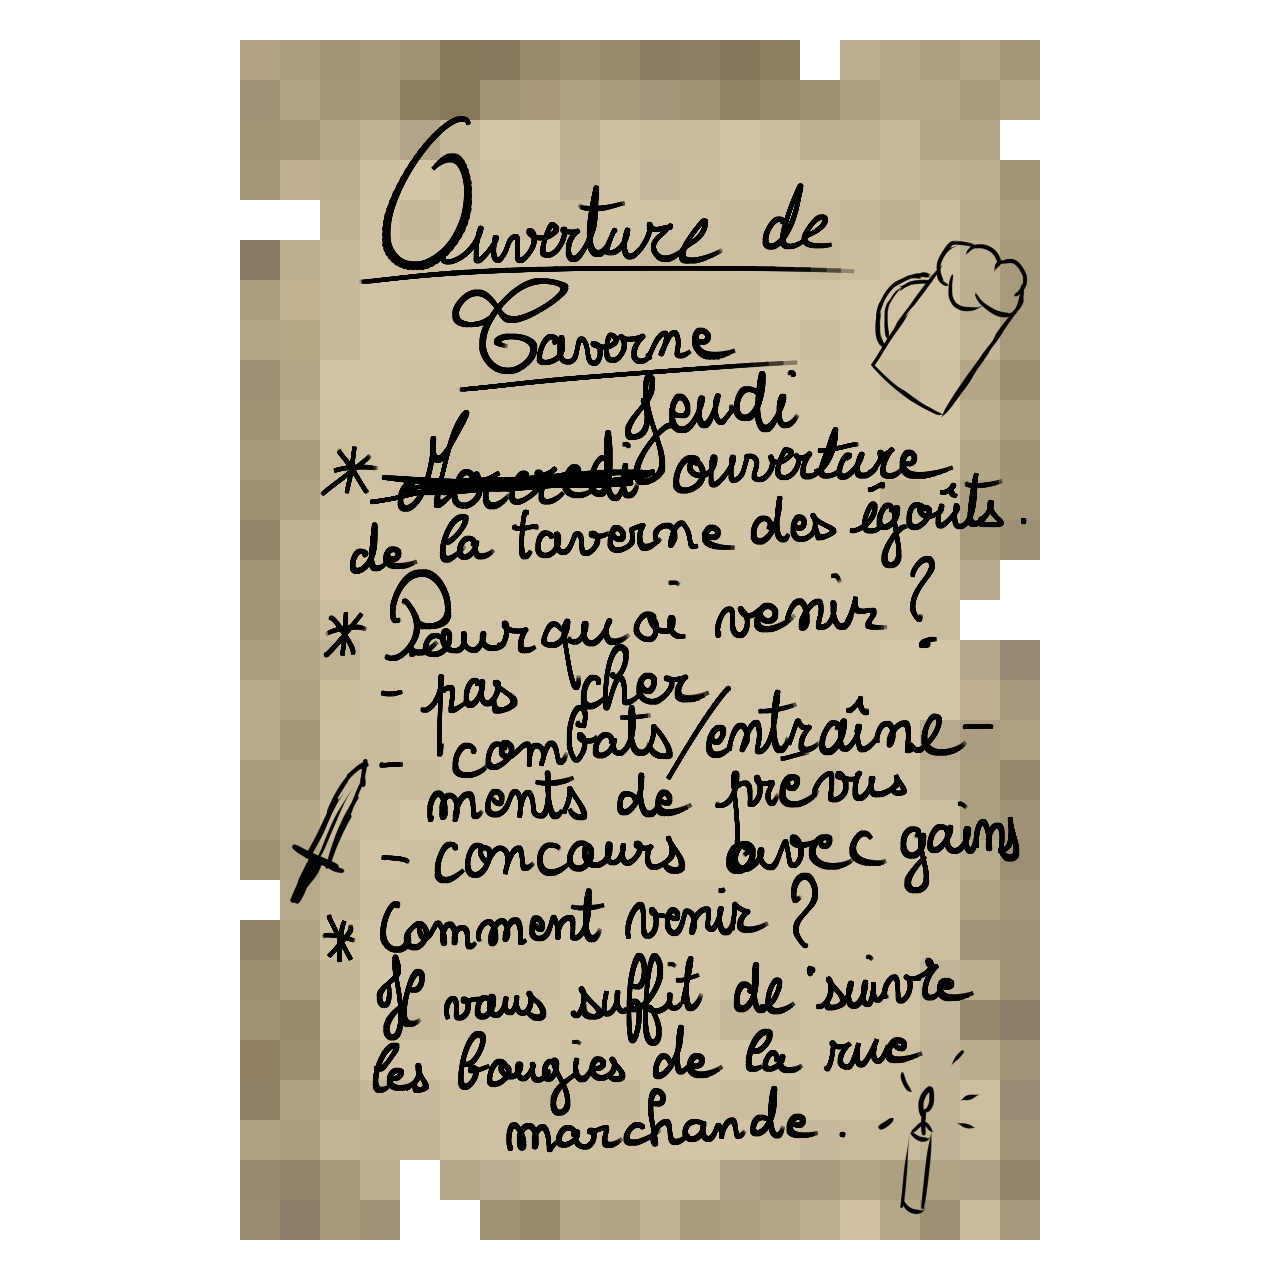 Ouverture de
Taverne
Jeudi
* Mercredi ouverture
de la taverne des égoûts.
* Pourquoi venir ?
- pas cher
- combats/entraîne-
ments de prevus
- concours avec gains
* Comment venir ?
Il vous suffit de suivre
les bougies de la rue
marchande.